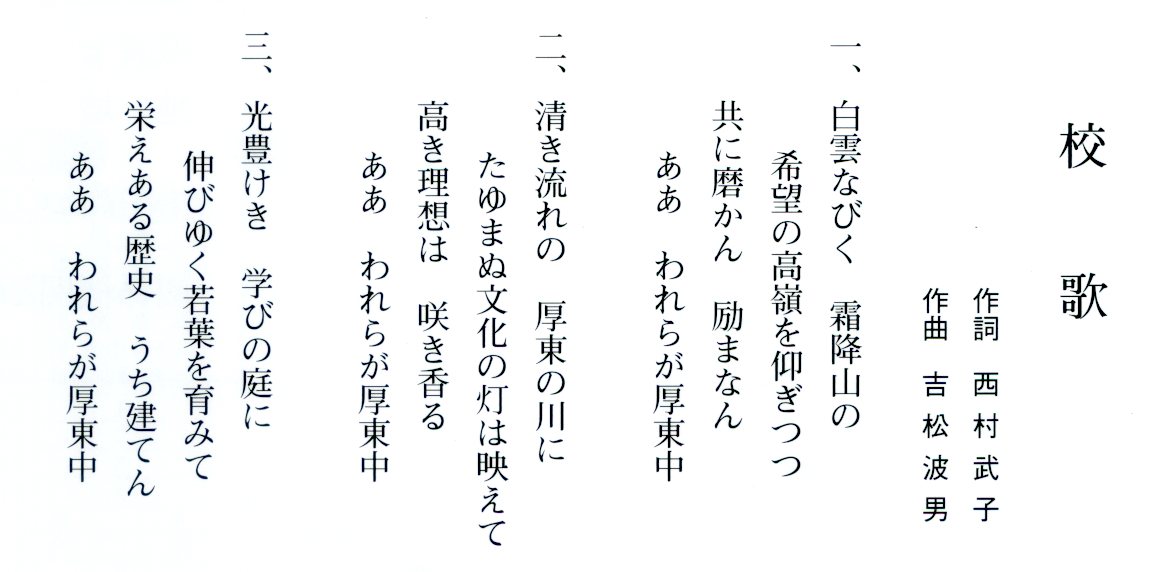 校歌
作詞 西村武子
作曲 吉松波男
一、白雲なびく 霜降山の
希望の高嶺を仰ぎつつ
共に磨かん 励まなん
ああ われらが厚東中
二、清き流れの 厚東の川に
たゆまぬ文化の灯は映えて
高き理想は 咲き香る
ああ われらが厚東中
三、光豊けき 学びの庭に
伸びゆく若葉を育みて
栄えある歴史 うち建てん
ああ われらが厚東中